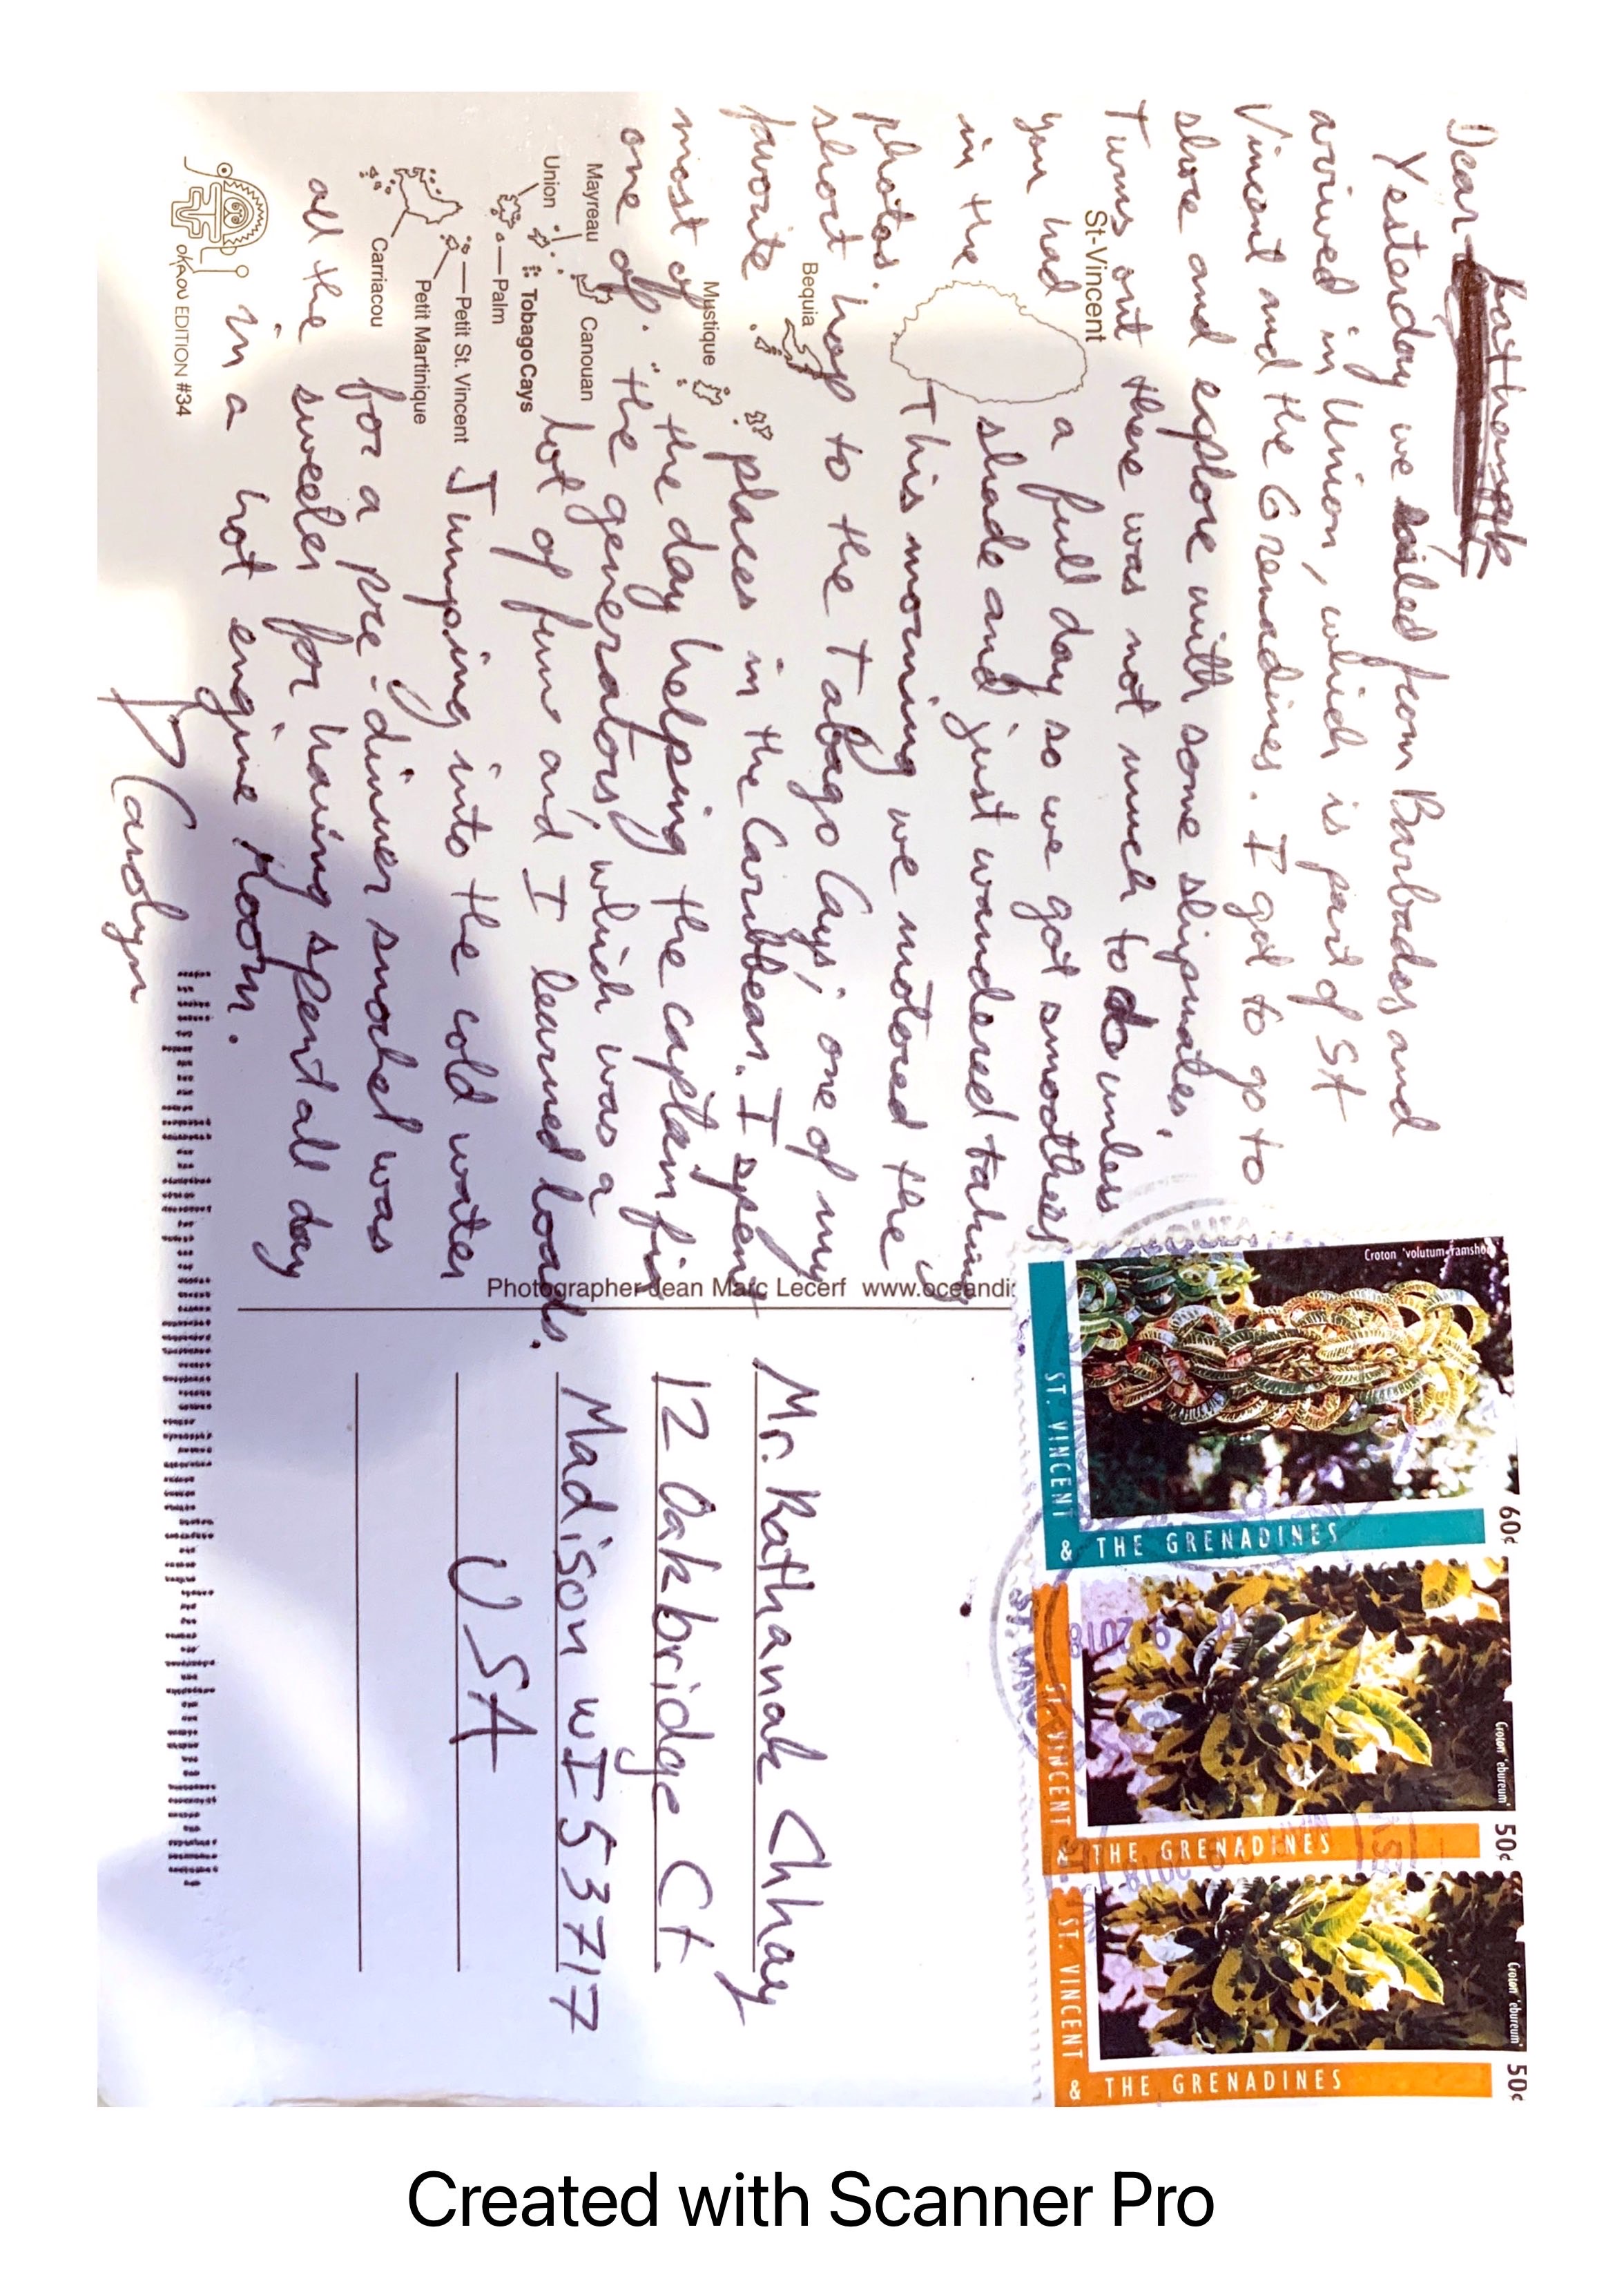 Dear Rathanak
Yesterday we sailed from Barbados and
arrived in Union, which is part of St
Vincent and the Grenadines. I got to go to
shore and explore with some shipmates.
Turns out there was not much to do unless
you had a full day so we got smoothies
in the shade and just wandered taking
photos. This morning we motored the
short hop to the Tabago Cays, one of my
favorite places in the Caribbean. I spent
most of the day helping the captain fix
one of the generators, which was a
lot of fun and I learned loads.
Jumping into the cold water
for a pre-dinner snorkel was
all the sweeter for having spent all day
in a hot engine room.
Carolyn
St-Vincent
Bequia
Mustique
Canouan
Mayreau
Union
Tobago Cays
Palm
Petit St. Vincent
Petit Martinique
Carriacou
OKAOU EDITION #34
Photographer Jean Marc Lecerf www.oceandi
Croton 'volutum ramshorn'
60c
ST. VINCENT & THE GRENADINES
Croton 'ebureum'
50c
ST. VINCENT & THE GRENADINES
Croton 'ebureum'
50c
ST. VINCENT & THE GRENADINES
9 2018
Mr. Rathanak Chhay
12 Oakbridge Ct.
Madison WI 53717
USA
Created with Scanner Pro